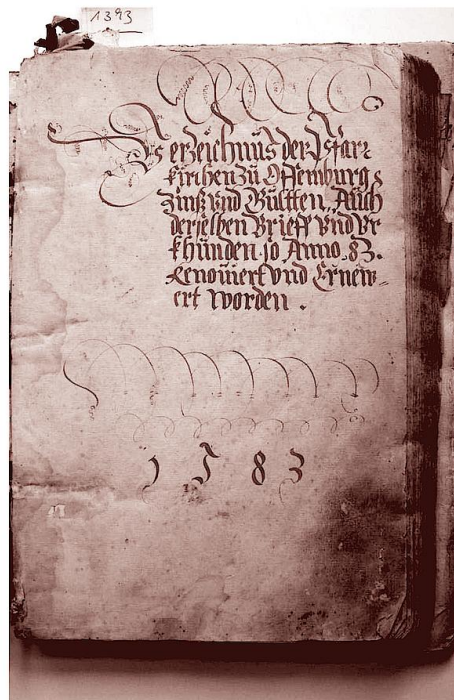 1393
Verzeichnus der Pfarr
kirchen zu Offemburg
Zinß vnd Gültten, Auch
derselben Brieff vnd Vr
khunden so Anno .83.
Renouiert vnd Ernew-
ert worden .
1583